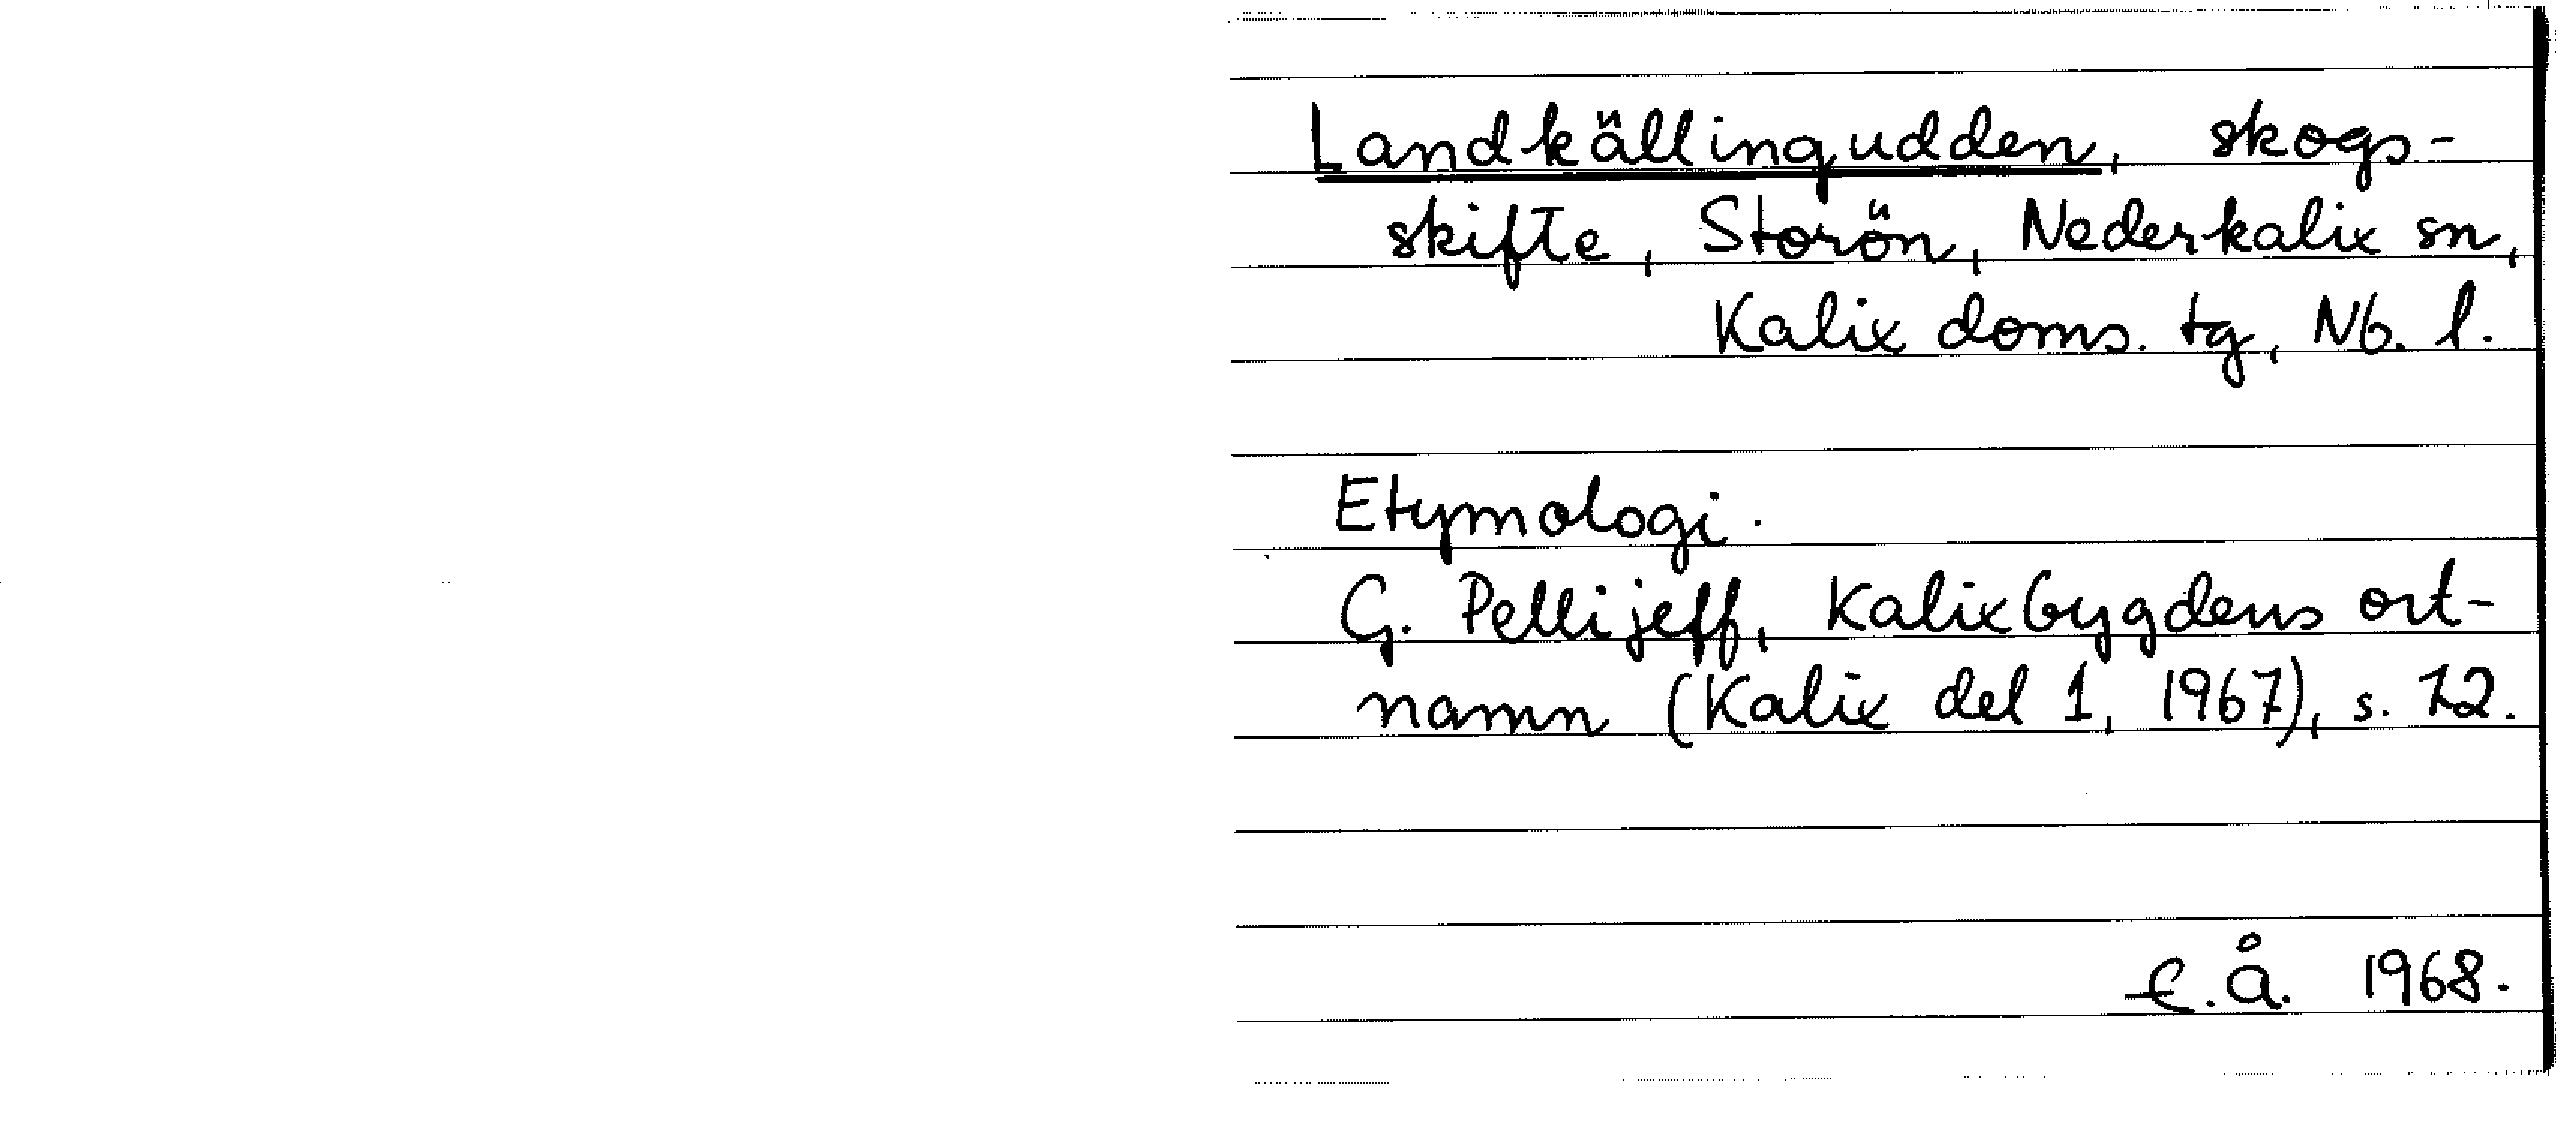 Landkällingudden, skogs-
skifte, Storön, Nederkalix sn,
Kalix doms. tg, Nb. l.
Etymologi.
G. Pellijeff, Kalixbygdens ort-
namn (Kalix del 1, 1967), s. 72.
E.Å. 1968.